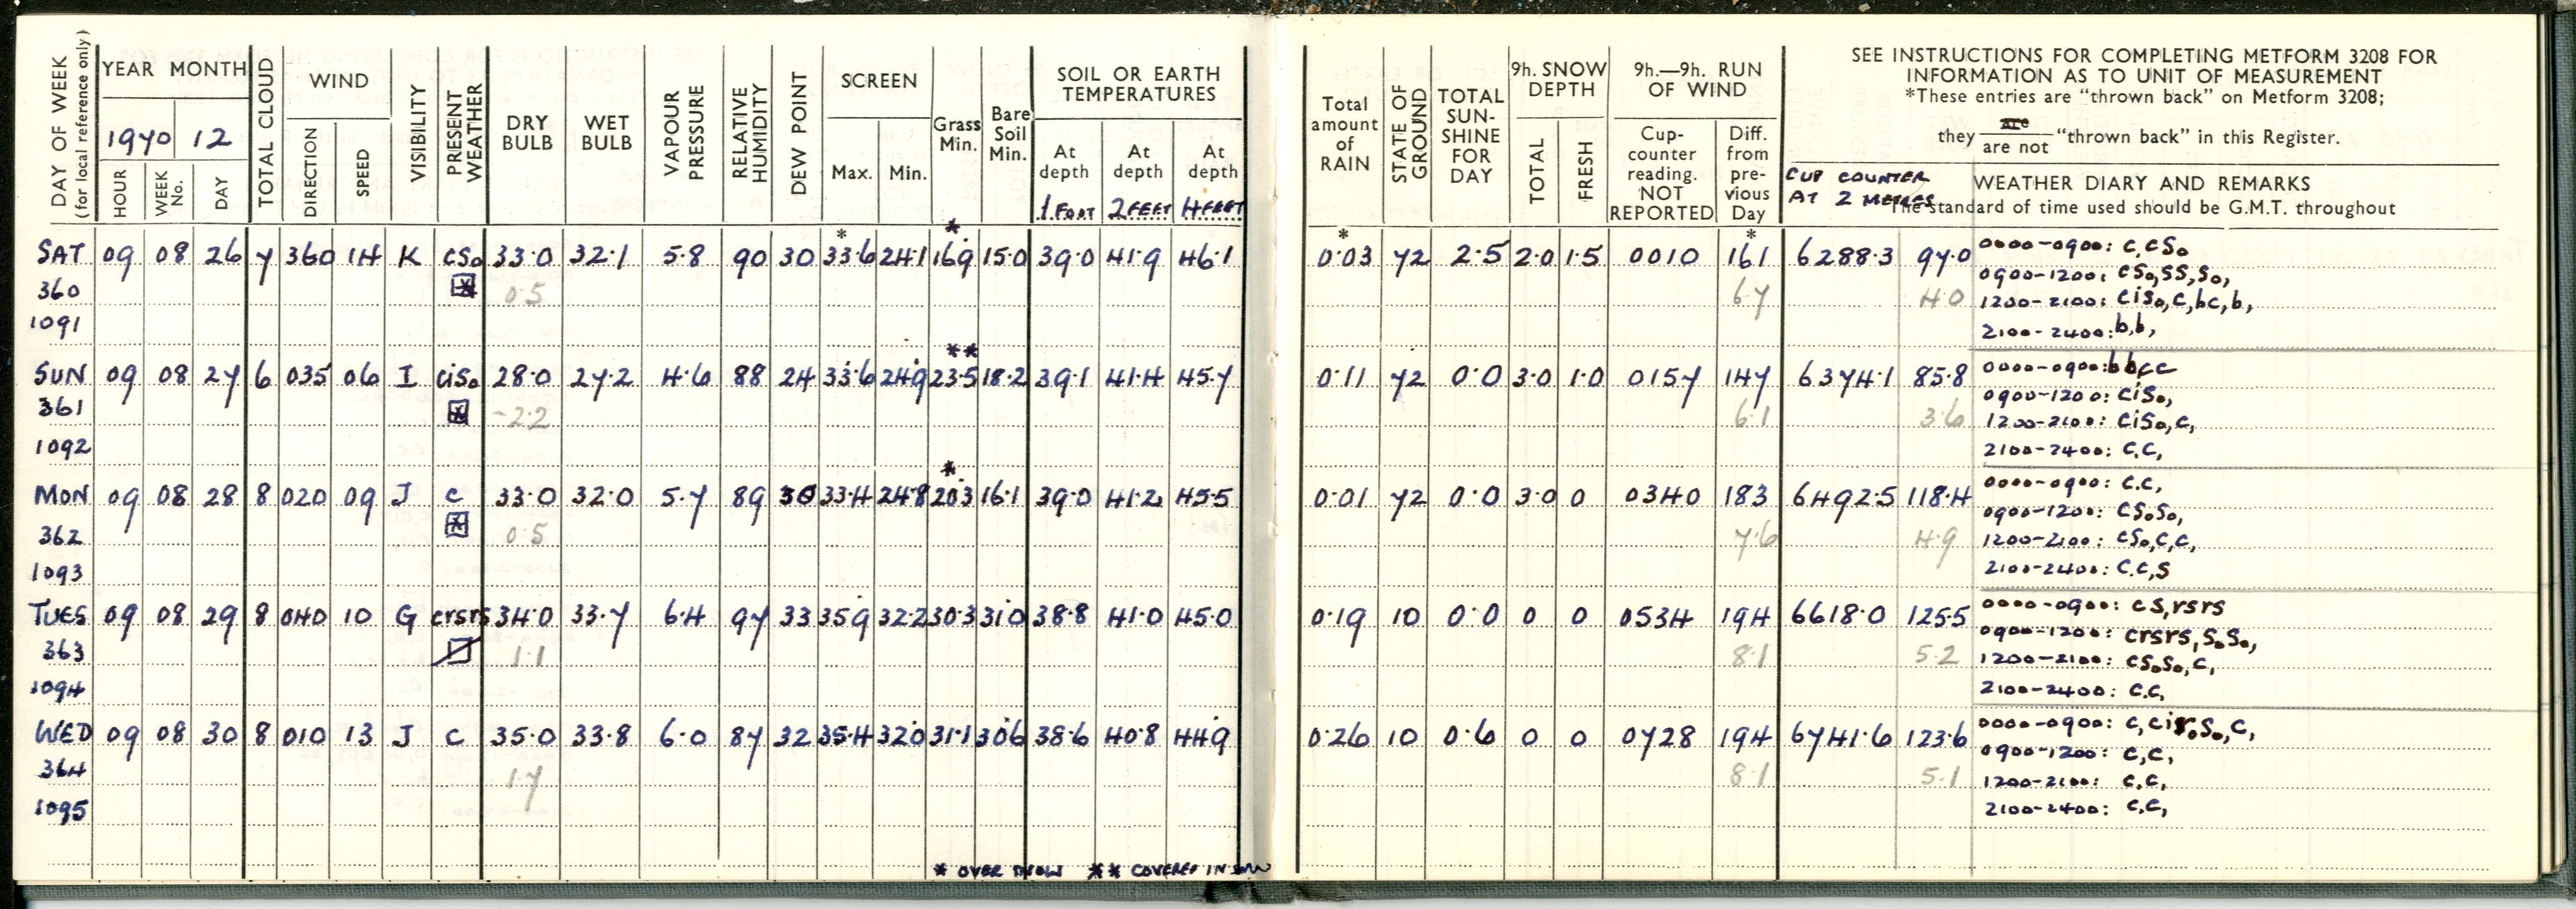 DAY OF WEEK
(for local reference only)
YEAR MONTH
1970 12
HOUR
WEEK No.
DAY
TOTAL CLOUD
WIND
DIRECTION
SPEED
VISIBILITY
PRESENT WEATHER
DRY BULB
WET BULB
VAPOUR PRESSURE
RELATIVE HUMIDITY
DEW POINT
SCREEN
Max. Min.
Grass Min.
Bare Soil Min.
SOIL OR EARTH TEMPERATURES
At depth 1 FOOT
At depth 2 FEET
At depth 4 FEET
Total amount of RAIN
STATE OF GROUND
TOTAL SUN-SHINE FOR DAY
9h. SNOW DEPTH
TOTAL
FRESH
9h.—9h. RUN OF WIND
Cup-counter reading. NOT REPORTED
Diff. from pre-vious Day
SEE INSTRUCTIONS FOR COMPLETING METFORM 3208 FOR
INFORMATION AS TO UNIT OF MEASUREMENT
*These entries are "thrown back" on Metform 3208;
they are / are not "thrown back" in this Register.
CUP COUNTER
AT 2 METRES
WEATHER DIARY AND REMARKS
The standard of time used should be G.M.T. throughout
SAT 09 08 26 7 360 14 K cs₀ 33.0 32.1 5.8 90 30 33.6 24.1 16.9 15.0 39.0 41.9 46.1 0.03 72 2.5 2.0 1.5 0010 161 6288.3 97.0 0000-0900: c,cs₀
360 0.5 6.7 4.0 0900-1200: cs₀,ss,s₀,
1200-2100: cis₀,c,bc,b,
1091 2100-2400: b,b,
SUN 09 08 27 6 035 06 I cis₀ 28.0 27.2 4.6 88 24 33.6 24.9 23.5 18.2 39.1 41.4 45.7 0.11 72 0.0 3.0 1.0 0157 147 6374.1 85.8 0000-0900: b bc,c
361 -2.2 6.1 3.6 0900-1200: cis₀,
1200-2100: cis₀,c,
1092 2100-2400: c.c,
MON 09 08 28 8 020 09 J c 33.0 32.0 5.7 89 30 33.4 24.8 20.3 16.1 39.0 41.2 45.5 0.01 72 0.0 3.0 0 0340 183 6492.5 118.4 0000-0900: c.c,
362 0.5 7.6 4.9 0900-1200: cs₀s₀,
1200-2100: cs₀,c,c,
1093 2100-2400: c.c,s
TUES 09 08 29 8 040 10 G crsrs 34.0 33.7 6.4 97 33 35.9 32.2 30.3 31.0 38.8 41.0 45.0 0.19 10 0.0 0 0 0534 194 6618.0 125.5 0000-0900: cs,rsrs
363 1.1 8.1 5.2 0900-1200: crsrs,s₀s₀,
1200-2100: cs₀s₀,c,
1094 2100-2400: c.c,
WED 09 08 30 8 010 13 J c 35.0 33.8 6.0 87 32 35.4 32.0 31.1 30.6 38.6 40.8 44.9 0.26 10 0.6 0 0 0728 194 6741.6 123.6 0000-0900: c,cir₀s₀,c,
364 1.7 8.1 5.1 0900-1200: c,c,
1200-2100: c.c,
1095 2100-2400: c.c,
* OVER SNOW ** COVERED IN SNOW